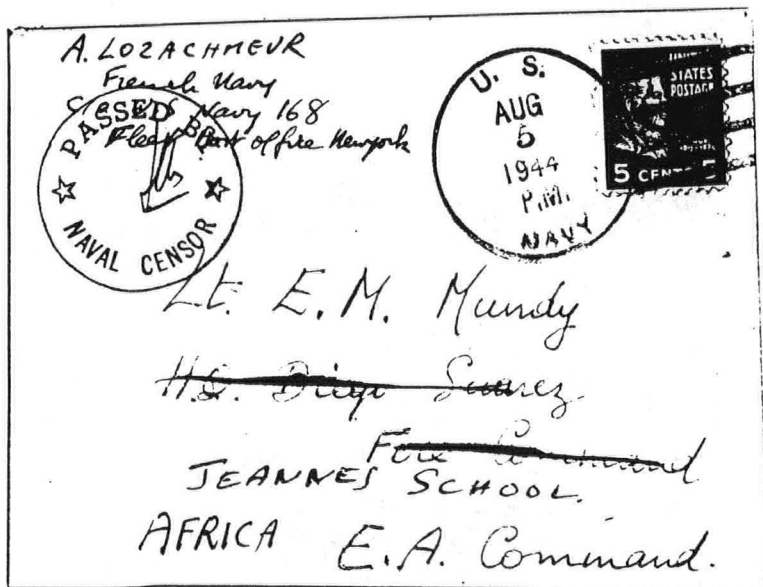 A. LOZACHMEUR
French Navy
Navy 168
Fleet Post office Newyork
PASSED BY
NAVAL CENSOR
U. S.
AUG
5
1944
P.M.
NAVY
UNITED
STATES
POSTAGE
5 CENTS 5
Lt. E. M. Mundy
H.Q. Diego Suarez
Fire Command
JEANNES SCHOOL.
AFRICA E.A. Command.